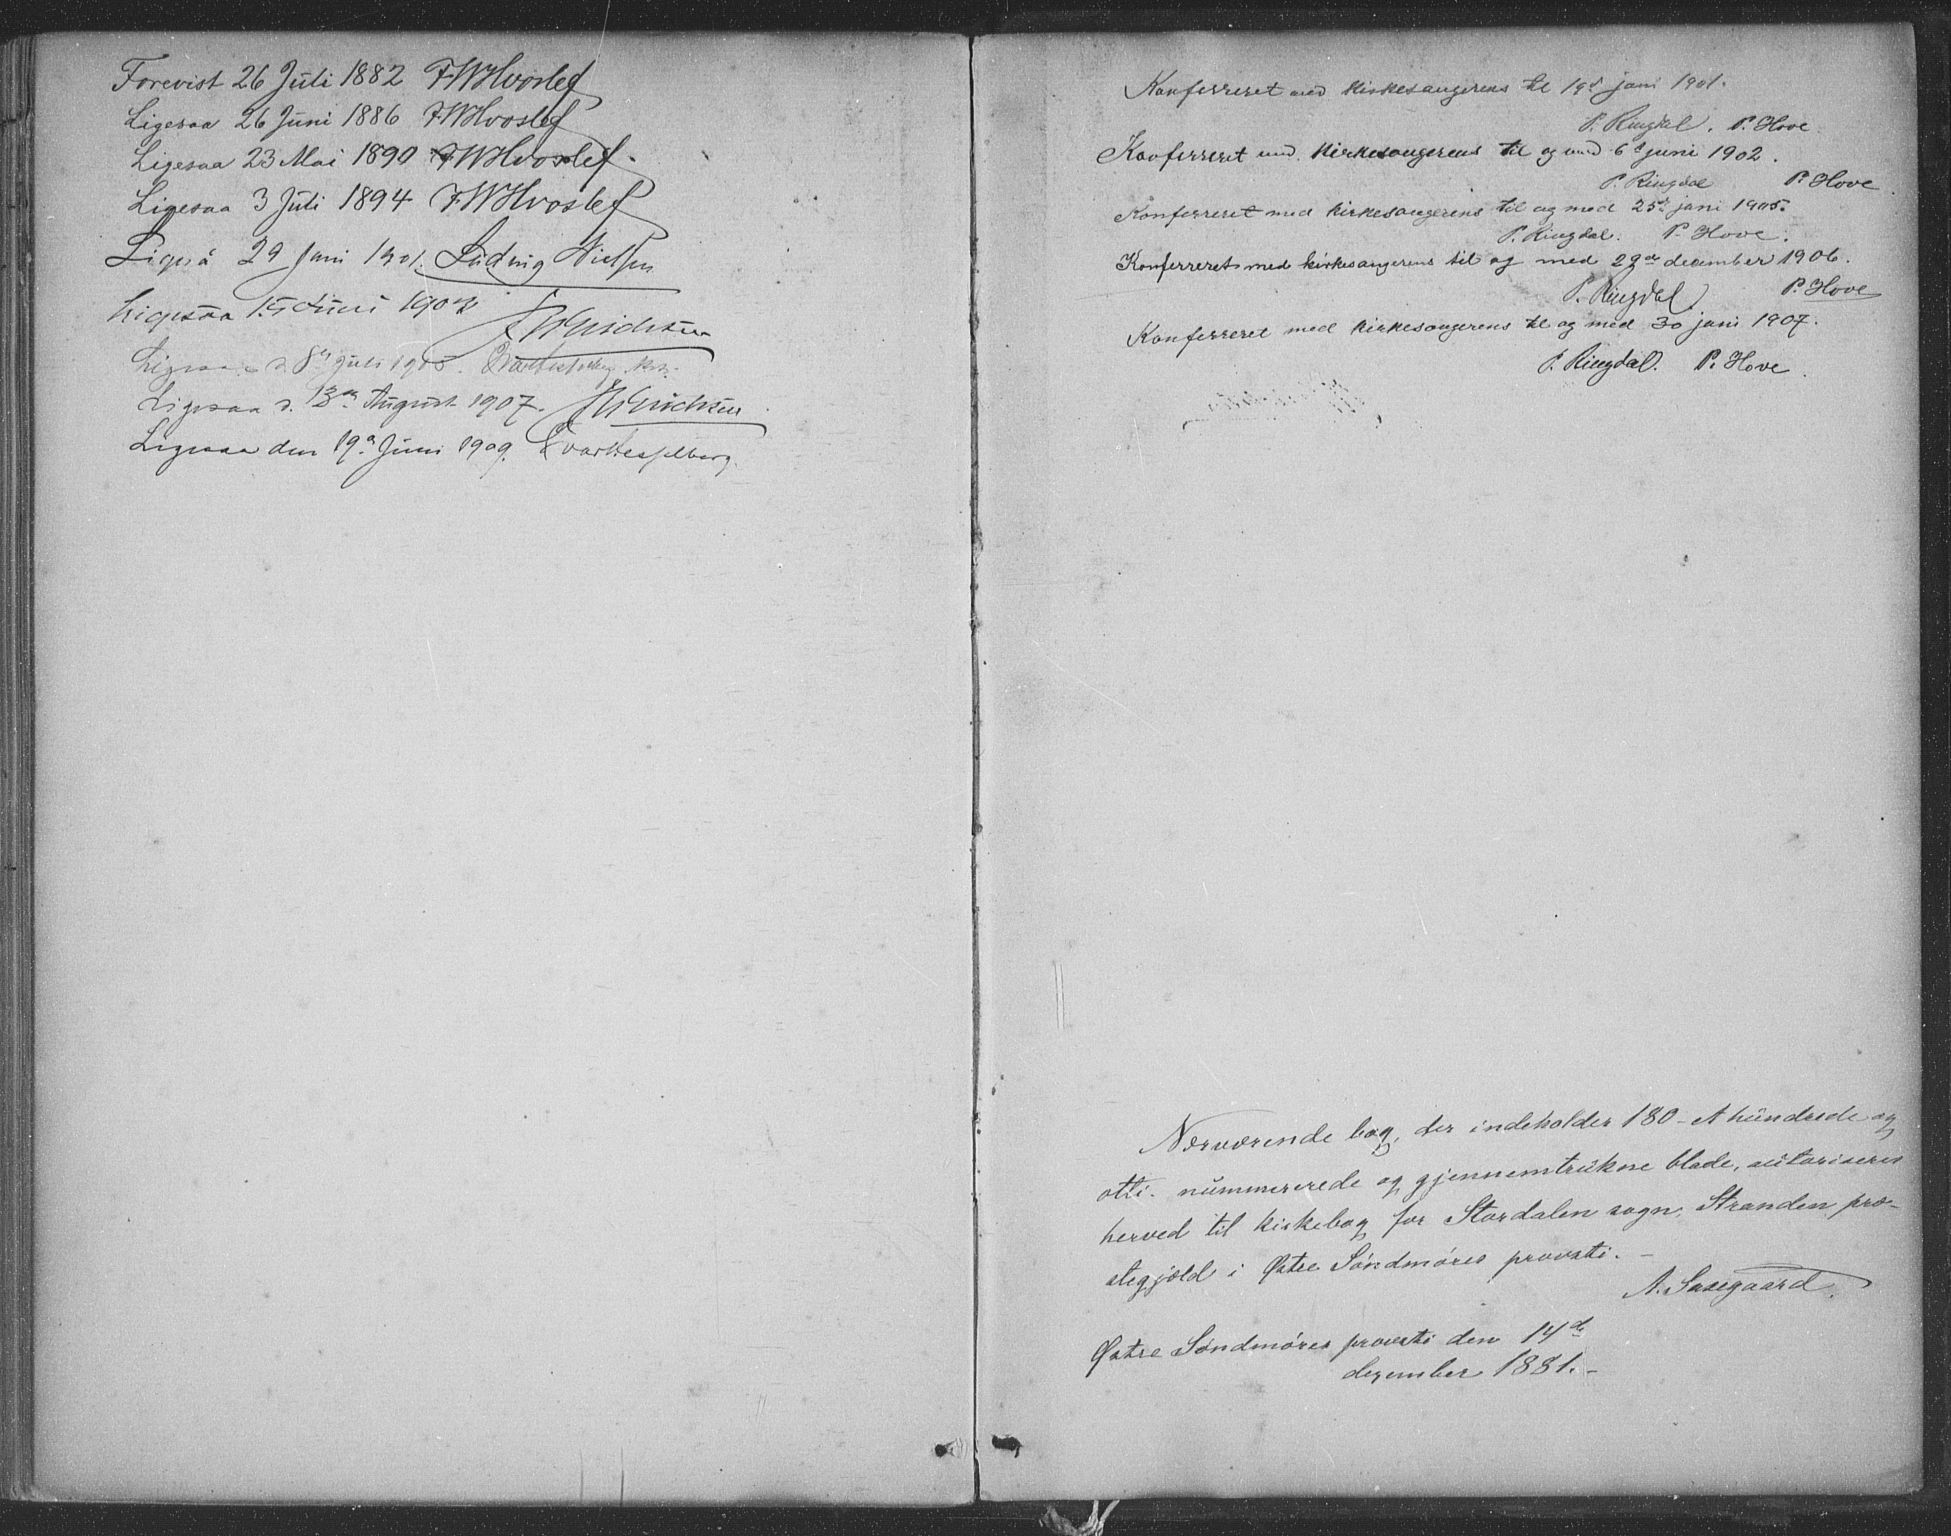 Forevist 26 Juli 1882 FWHvoslef
Ligesaa 26 Juni 1886 FWHvoslef
Ligesaa 23 Mai 1890 FWHvoslef.
Ligesaa 3 Juli 1894 FWHvoslef
Ligeså 29 Juni 1901. Ludvig Nielsen
Ligesaa Juni 1902 Erichsen
Ligesaa d. 8de Juli 1905.
Ligesaa d. 13de August 1907. Erichsen
Ligesaa den 19de Juni 1909.
Konferreret med kirkesangerens til 19de juni 1901.
P. Ringdal. P. Hove
Konferreret med kirkesangerens til og med 6te juni 1902.
P. Ringdal P. Hove
Konferreret med kirkesangerens til og med 25de juni 1905.
P. Ringdal. P. Hove.
Konferreret med kirkesangerens til og med 29de december 1906.
P. Ringdal P. Hove
Konferreret med kirkesangerens til og med 30 juni 1907.
P. Ringdal. P. Hove
Nærværende bog, der indeholder 180 - et hundrede og
otti - nummererede og gjennemtrukne blade, autoriseres
herved til kirkebog for Stordalen sogn, Stranden præ-
stegjæld i Østre Söndmöres provsti. -
A. Saxegaard.
Østre Söndmöres provsti den 14de
dezember 1881. -